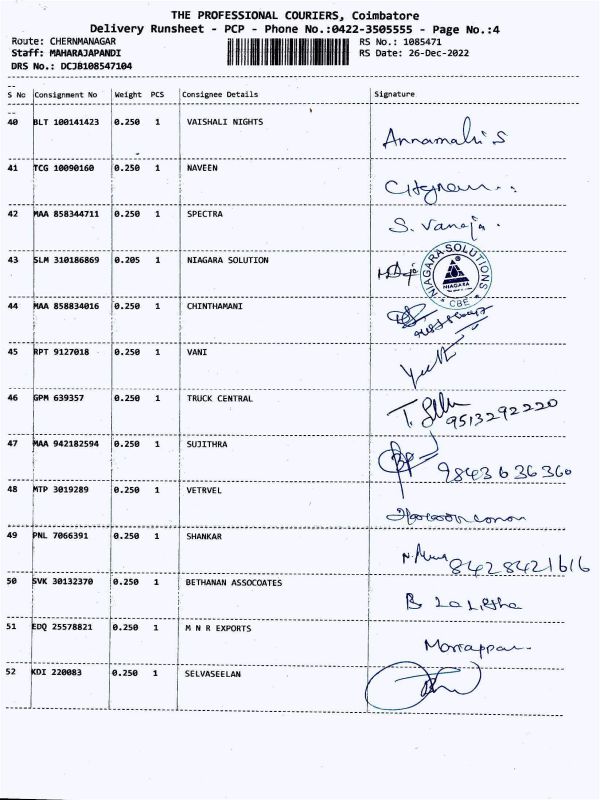 THE PROFESSIONAL COURIERS, Coimbatore
Delivery Runsheet - PCP - Phone No.:0422-3505555 - Page No.:4
Route: CHERNMANAGAR RS No.: 1085471
Staff: MAHARAJAPANDI RS Date: 26-Dec-2022
DRS No.: DCJB108547104
S No Consignment No Weight PCS Consignee Details Signature
40 BLT 100141423 0.250 1 VAISHALI NIGHTS
41 TCG 10090160 0.250 1 NAVEEN
42 MAA 858344711 0.250 1 SPECTRA S. Vanaja.
43 SLM 310186869 0.205 1 NIAGARA SOLUTION NIAGARA SOLUTIONS NIAGARA CBE
44 MAA 858834016 0.250 1 CHINTHAMANI
45 RPT 9127018 0.250 1 VANI
46 GPM 639357 0.250 1 TRUCK CENTRAL 9513292220
47 MAA 942182594 0.250 1 SUJITHRA 9843636360
48 MTP 3019289 0.250 1 VETRVEL
49 PNL 7066391 0.250 1 SHANKAR 8428421616
50 SVK 30132370 0.250 1 BETHANAN ASSOCOATES
51 EDQ 25578821 0.250 1 M N R EXPORTS
52 KDI 220083 0.250 1 SELVASEELAN